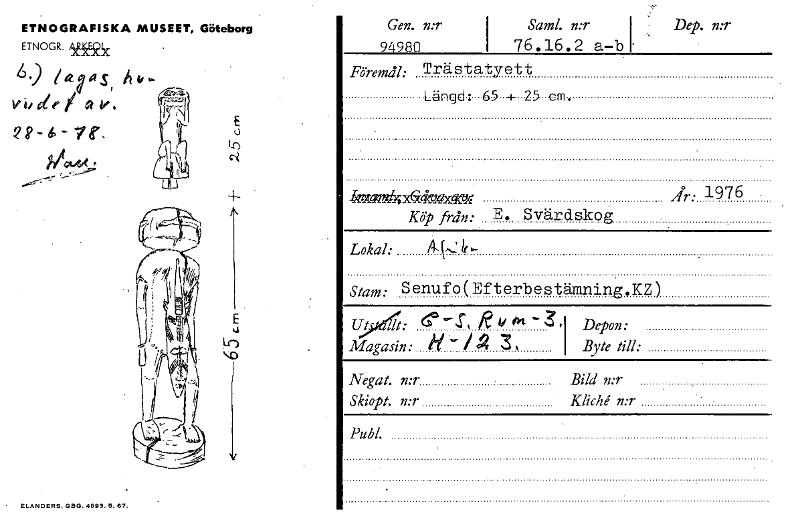 ETNOGRAFISKA MUSEET, Göteborg
ETNOGR. ARKEOL.
b.) lagas, hu-
vudet av.
28-6-78.
25 cm
+
65 cm
ELANDERS, GBG. 4693. 5. 67.
Gen. n:r Saml. n:r Dep. n:r
94980 76.16.2 a-b
Föremål: Trästatyett
Längd: 65 + 25 cm.
Insaml., Gåva av: År: 1976
Köp från: E. Svärdskog
Lokal: Afrika
Stam: Senufo(Efterbestämning.KZ)
Utställt: G-S. Rum-3. Depon:
Magasin: H-123. Byte till:
Negat. n:r Bild n:r
Skiopt. n:r Kliché n:r
Publ.